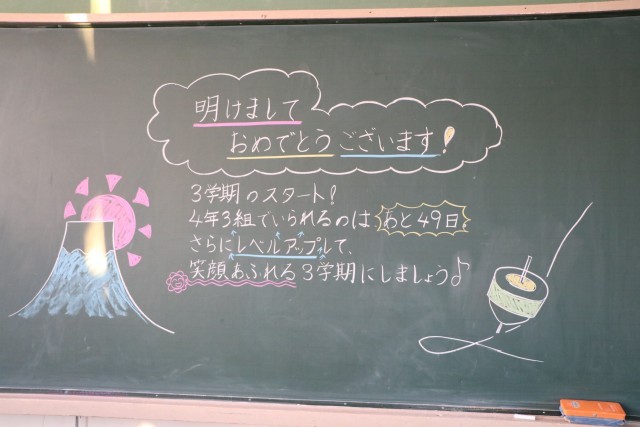 明けまして
おめでとうございます!
3学期のスタート!
4年3組でいられるのは、あと49日。
さらにレベルアップして、
笑顔あふれる3学期にしましょう♪